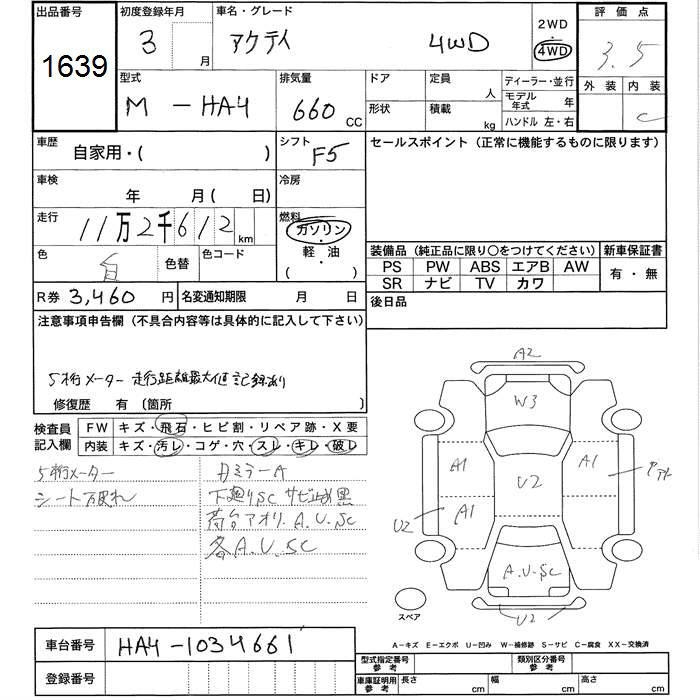 出品番号
1639
初度登録年月
3 月
車名・グレード
アクティ 4WD
2WD
4WD
評価点
3.5
外装 内装
C
型式
M - HA4
排気量
660 CC
ドア
形状
定員 人
積載 kg
ディーラー・並行
モデル年式 年
ハンドル 左・右
車歴
自家用・( )
シフト
F5
セールスポイント(正常に機能するものに限ります)
車検
年 月( 日)
冷房
走行
11万2千612 km
燃料
ガソリン
軽・油
( )
色
白
色替
色コード
装備品(純正品に限り○をつけてください)
PS PW ABS エアB AW
SR ナビ TV カワ
新車保証書
有・無
R券 3,460 円
名変通知期限 月 日
後日品
注意事項申告欄(不具合内容等は具体的に記入して下さい)
5桁メーター 走行距離最大値記録あり
修復歴 有(箇所 )
検査員記入欄
FW キズ・飛石・ヒビ割・リペア跡・X要
内装 キズ・汚レ・コゲ・穴・スレ・キレ・破レ
5桁メーター
シート破れ
カミラーA
下廻りSC サビ止め黒
荷台アオリ.A.U.SC
各A.U.SC
A2
W3
A1
U2
A1
A1
U2
A.U.SC
U2
スペア
A-キズ E-エクボ U-凹み W-補修跡 S-サビ C-腐食 XX-交換済
車台番号
HA4-1034661
登録番号
型式指定番号 参考
類別区分番号 参考
車庫証明用 参考
長さ cm
幅 cm
高さ cm